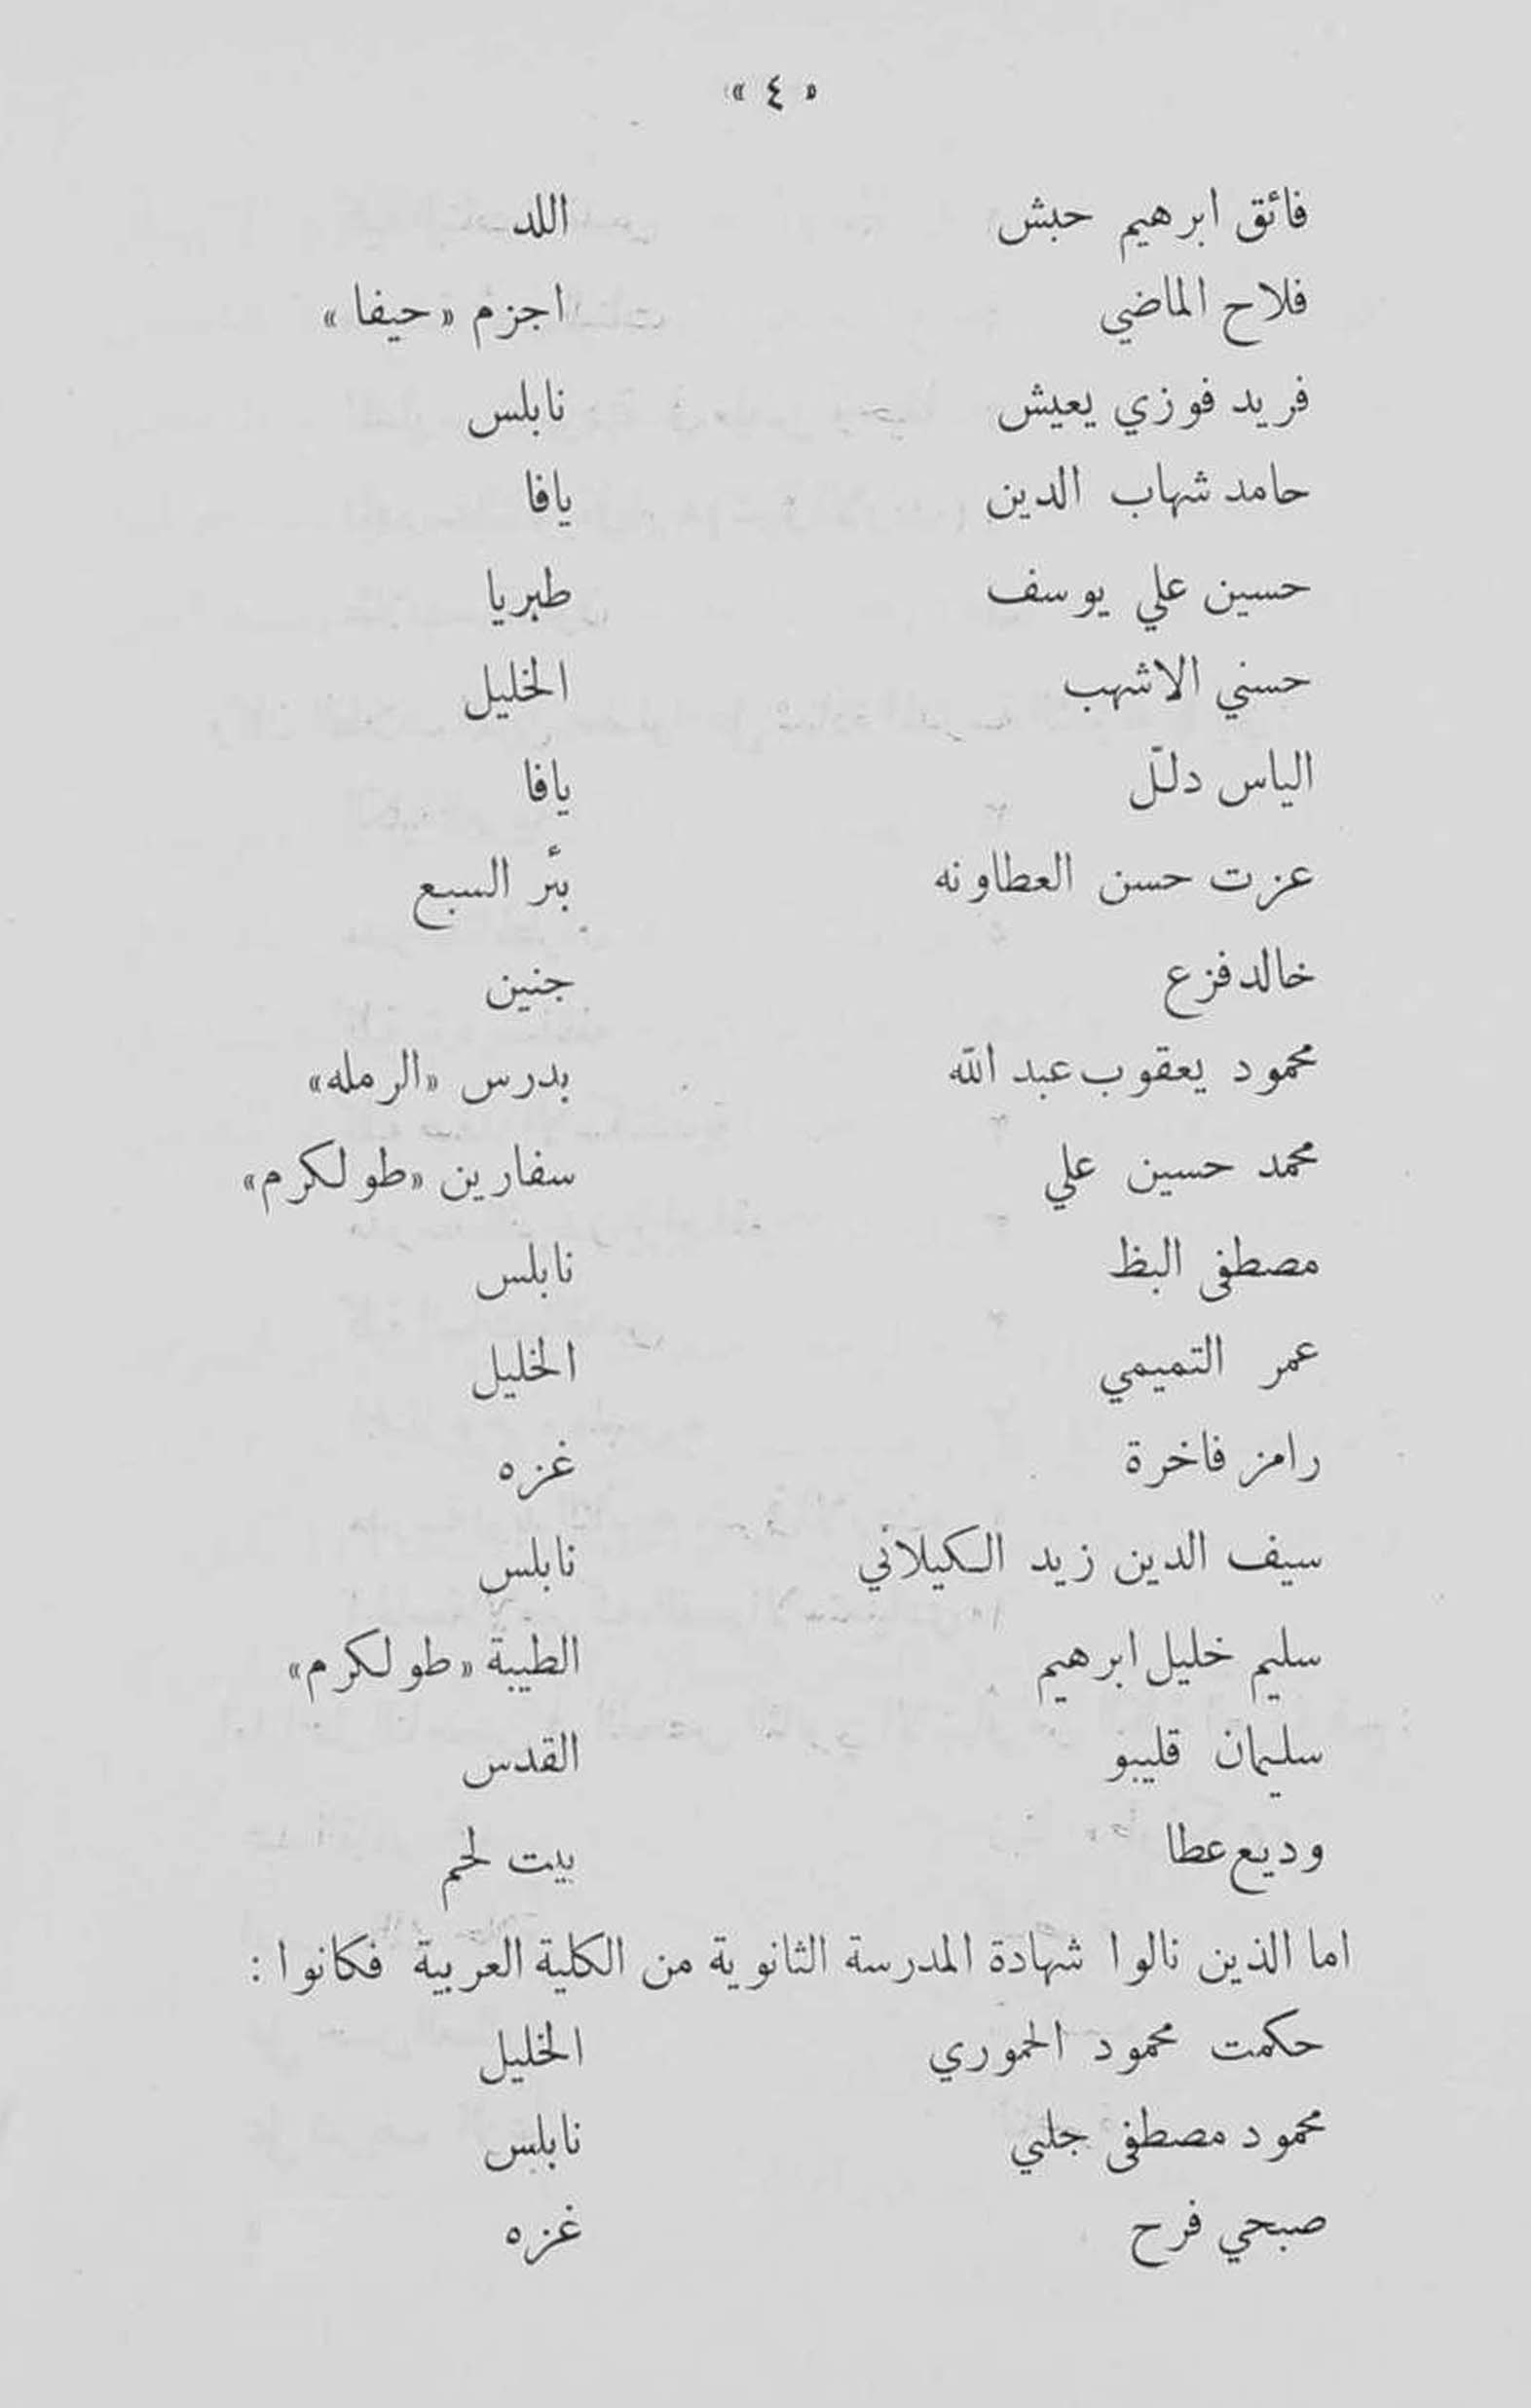 « ٤ »
فائق ابرهيم حبش اللد
فلاح الماضي اجزم «حيفا»
فريد فوزي يعيش نابلس
حامد شهاب الدين يافا
حسين علي يوسف طبريا
حسني الاشهب الخليل
الياس دلّل يافا
عزت حسن العطاونه بئر السبع
خالد فزع جنين
محمود يعقوب عبد الله بدرس «الرمله»
محمد حسين علي سفارين «طولكرم»
مصطفى البظ نابلس
عمر التميمي الخليل
رامز فاخرة غزه
سيف الدين زيد الكيلاني نابلس
سليم خليل ابرهيم الطيبة «طولكرم»
سليمان قليبو القدس
وديع عطا بيت لحم
اما الذين نالوا شهادة المدرسة الثانوية من الكلية العربية فكانوا :
حكمت محمود الحموري الخليل
محمود مصطفى جلبي نابلس
صبحي فرح غزه